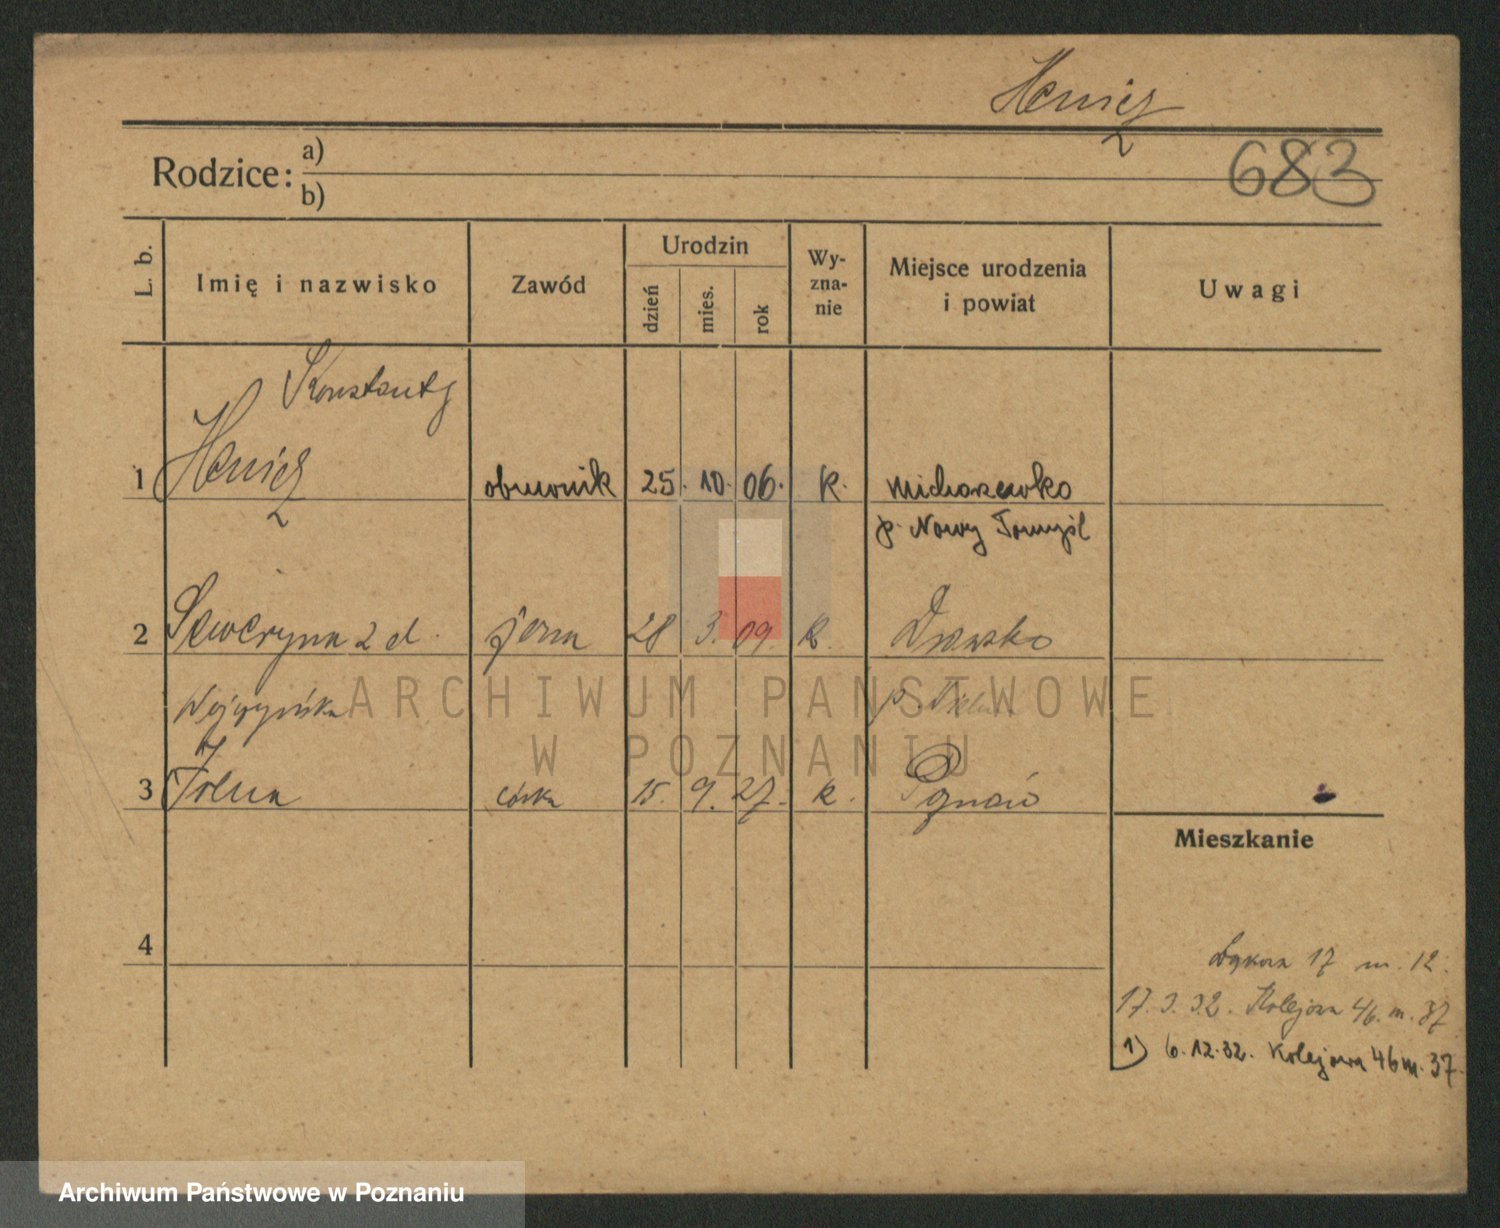 Henicz
683
Rodzice: a)
b)
L. b.
Imię i nazwisko
Zawód
Urodzin
dzień
mies.
rok
Wy-
zna-
nie
Miejsce urodzenia
i powiat
Uwagi
Konstanty
1 Henicz obuwnik 25. 10. 06. k. Michorzewko
p. Nowy Tomyśl
2 Seweryna z d. żona 28 3. 09. k. Drawsko
p.
3 córka 15. 9. 27. k. Poznań
Mieszkanie
4
17 m. 12.
17. 3. 32. Kolejowa 46. m. 37
1) 6.12.32. Kolejowa 46 m. 37.
ARCHIWUM PAŃSTWOWE
W POZNANIU
Archiwum Państwowe w Poznaniu